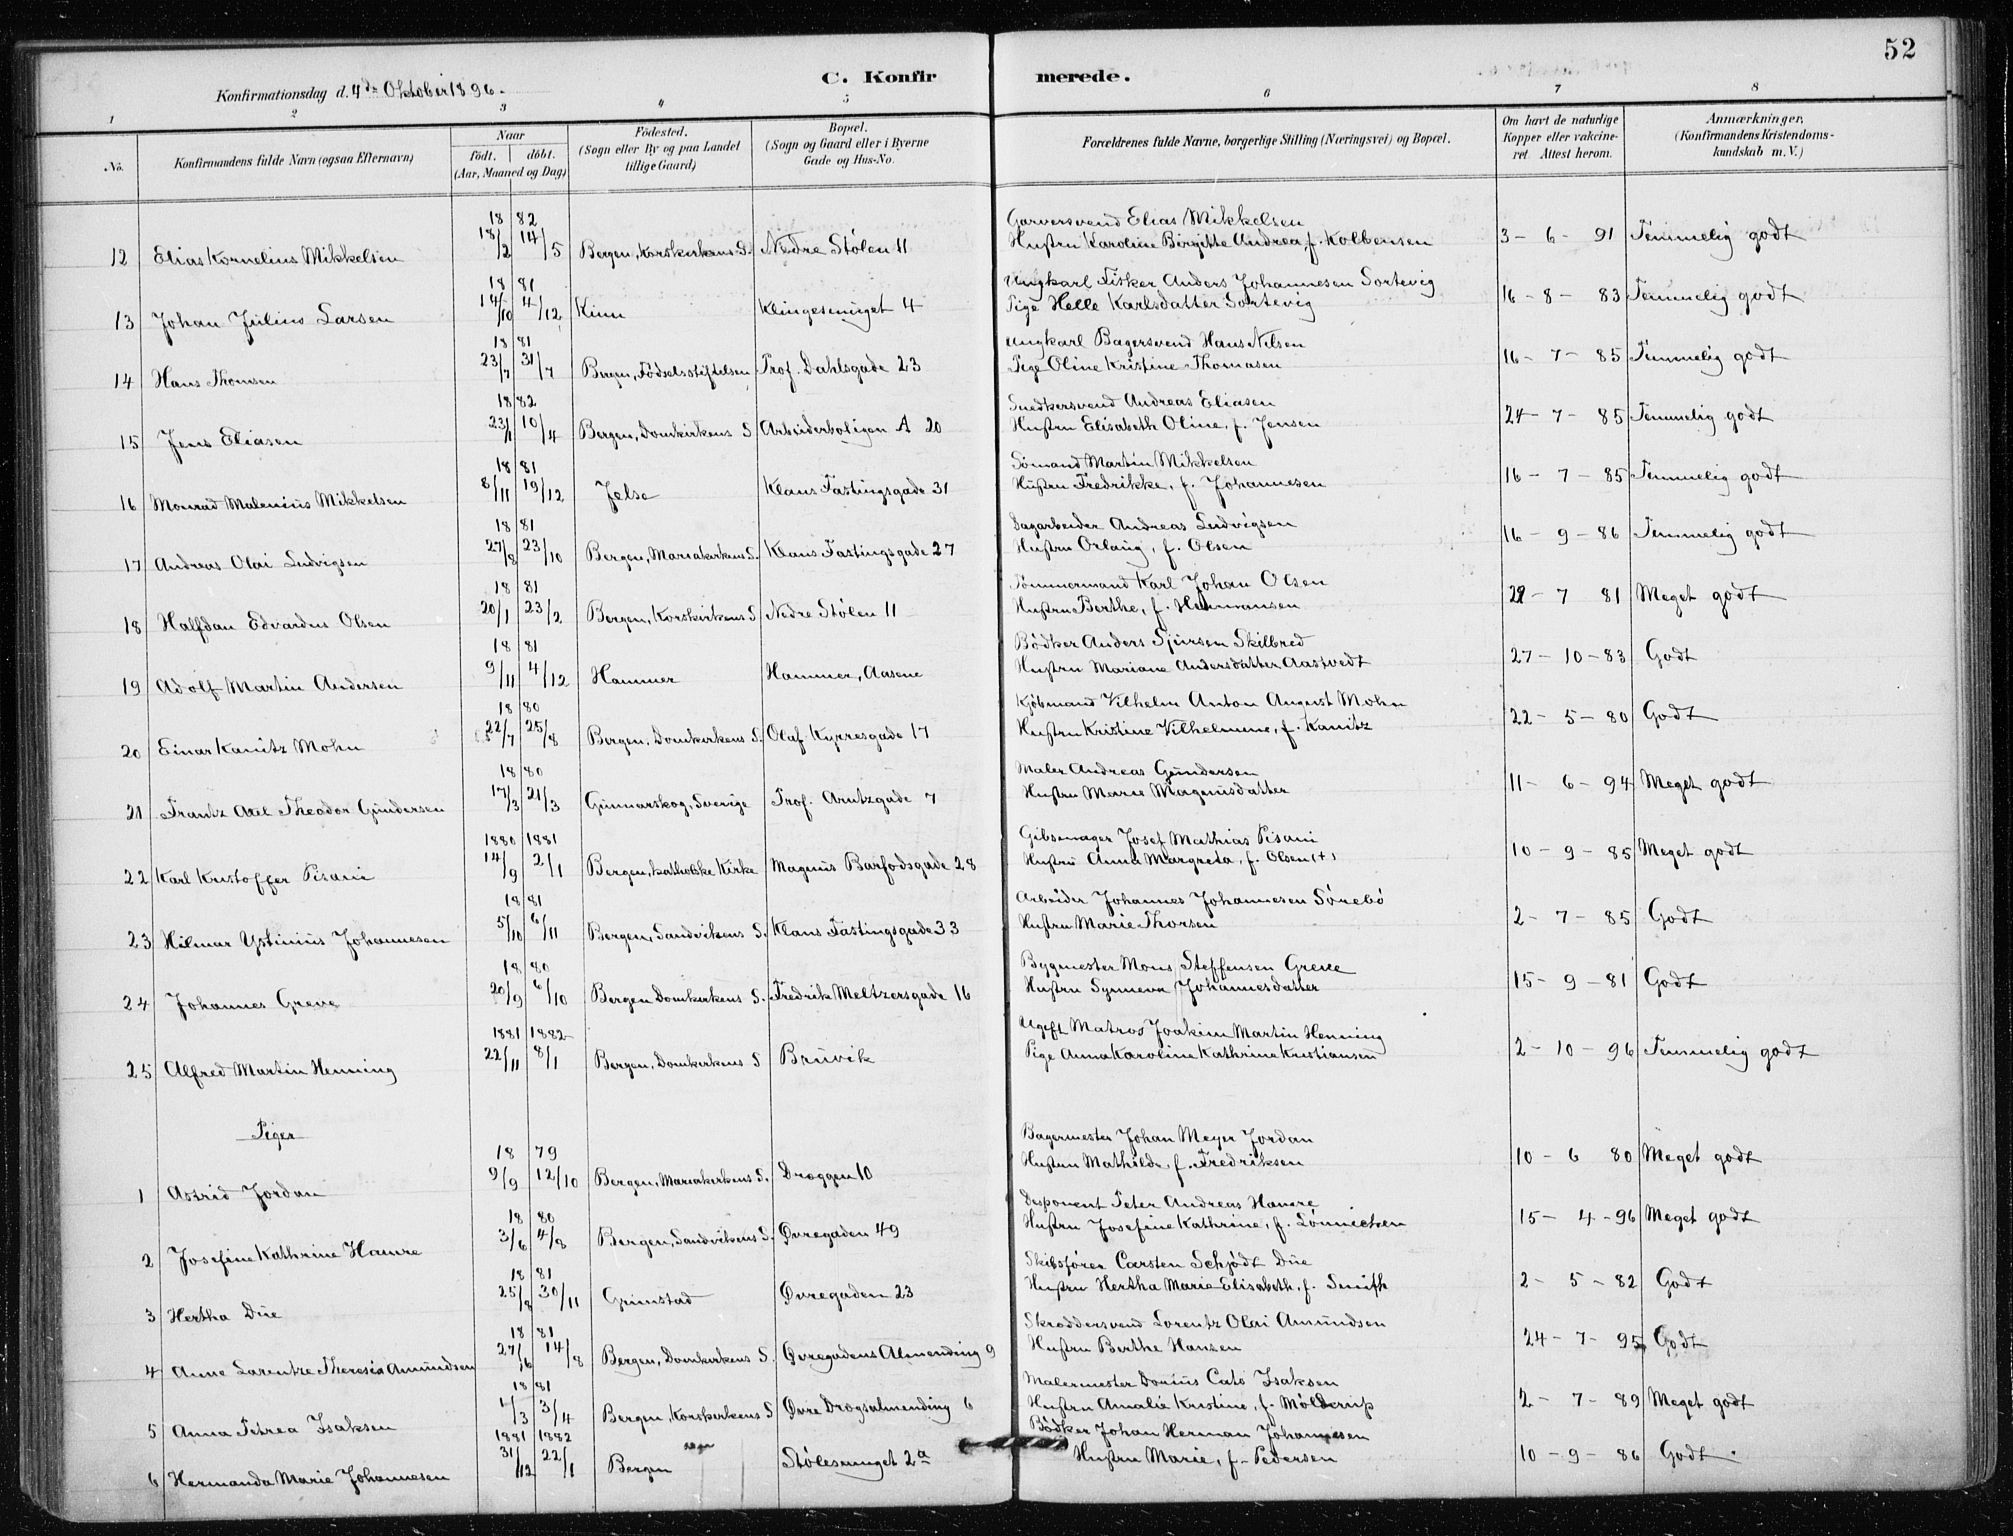 52
C. Konfirmerede.
Konfirmationsdag d. 4de Oktober 1896.
1 2 3 4 5 6 7 8
No. Konfirmandens fulde Navn (ogsaa Efternavn) Naar födt. döbt. (Aar, Maaned og Dag) Födested. (Sogn eller By og paa Landet tillige Gaard) Bopæl. (Sogn og Gaard eller i Byerne Gade og Hus-No. Forældrenes fulde Navne, borgerlige Stilling (Næringsvei) og Bopæl. Om havt de naturlige Kopper eller vakcineret. Attest herom. Anmærkninger, (Konfirmandens Kristendomskundskab m. V.)
18 82 Garversvend Elias Mikkelsen
12 Elias Kornelius Mikkelsen 18/2 14/5 Bergen, Korskirkens S. Nedre Stølen 11 Hustru Karoline Birgitte Andrea, f. Kolbensen 3-6-91 Temmelig godt
18 81 Ungkarl Fisker Anders Johannesen Sortevig
13 Johan Julius Larsen 14/10 4/12 Kinn Klingesmuget 4 Pige Helle Karlsdatter Sortevig 16-8-83 Temmelig godt
18 81 Ungkarl Bagersvend Hans Nilsen
14 Hans Thomsen 23/7 31/7 Bergen, Födselsstiftelsen Prof. Dahlsgade 23 Pige Oline Kristine Thomasen 16-7-85 Temmelig godt
18 82 Snedkersvend Andreas Eliasen
15 Jens Eliasen 23/1 10/4 Bergen, Domkirkens S Arbeiderboligen A 20 Hustru Elisabeth Oline, f. Jensen 24-7-85 Temmelig godt
18 81 Sömand Martin Mikkelsen
16 Monrad Malenius Mikkelsen 8/11 19/12 Jelse Klaus Fastingsgade 31 Hustru Fredrikke, f. Johannesen 16-7-85 Temmelig godt
18 81 Dagarbeider Andreas Ludvigsen
17 Andreas Olai Ludvigsen 27/8 23/10 Bergen, Mariakirkens S. Klaus Fastingsgade 27 Hustru Orlaug, f. Olsen 16-9-86 Temmelig godt
18 81 Tömmermand Karl Johan Olsen
18 Halfdan Edvardus Olsen 20/1 23/2 Bergen, Korskirkens S Nedre Stölen 11 Hustru Berthe, f. Hermansen 7 81 Meget godt
18 81 Bödker Anders Sjursen Skilbred
19 Adolf Martin Andersen 9/11 4/12 Hammer Hammer, Aasene Hustru Mariane Andersdatter Aastvedt 27-10-83 Godt
18 80 Kjöbmand Vilhelm Anton August Mohn
20 Einar Kanitz Mohn 22/7 25/8 Bergen, Domkirkens S. Olaf Kyrresgade 17 Hustru Kristine Vilhelmine, f. Kanitz 22-5-80 Godt
18 80 Maler Andreas Gundersen
21 Frantz Axel Theodor Gundersen 17/3 21/3 Gunnarskog, Sverige Prof. Arntzgade 7 Hustru Marie Magnusdatter 11-6-94 Meget godt
1880 1881 Gibsmager Josef Mathias Pisani
22 Karl Kristoffer Pisani 14/9 2/1 Bergen, katholske Kirke Magnus Barfodsgade 28 Hustru Anna Margreta, f. Olsen (+) 10-9-85 Meget godt
18 81 Arbeider Johannes Johannesen Sörebö
23 Hilmar Ystinius Johannesen 5/10 6/11 Bergen, Sandvikens S. Klaus Fastingsgade 33 Hustru Marie Thorsen 2-7-85 Godt
18 80 Bygmester Mons Steffensen Greve
24 Johannes Greve 20/9 6/10 Bergen Domkirkens S. Fredrik Meltzersgade 16 Hustru Synneva Johannesdatter 15-9-81 Godt
1881 1882 Ugift Matros Joakim Martin Henning
25 Alfred Martin Henning 22/11 8/1 Bergen, Domkirkens S Bruvik Pige Anna Karoline Kathrine Kristiansen 2-10-96 Temmelig godt
Piger
18 79 Bagermester Johan Meyer Jordan
1 Astrid Jordan 9/9 12/10 Bergen, Mariakirkens S. Dræggen 10 Hustru Mathilde, f. Fredriksen 10-6 80 Meget godt
18 80 Disponent Peter Andreas Hamre
2 Josefine Kathrine Hamre 3/6 4/8 Bergen, Sandvikens S. Øvregaden 49 Hustru Josefine Kathrine, f. Lønnichen 15-4-96 Meget godt
18 81 Skibsfører Carsten Schjødt Due
3 Hertha Due 25/8 30/11 Grimstad Øvregaden 23 Hustru Hertha Marie Elisabeth, f. Smith 2-5-82 Godt
18 81 Skræddersvend Lorentz Olai Amundsen
4 Anne Lorentze Theresia Amundsen 27/6 14/8 Bergen, Domkirkens S. Øvregadens Almending 9 Hustru Berthe Hansen 24-7-95 Godt
18 81 Malermester Dorius Cato Isaksen
5 Anna Petrea Isaksen /3 3/4 Bergen, Korskirkens S Øvre Drægsalmending 6 Hustru Amalie Kristine, f. Mölderup 2-7-89 Meget godt
1881 1882 Bödker Johan Herman Johannesen
6 Hermanda Marie Johannesen 31/12 22/1 Bergen Stölesmuget 2a Hustru Marie, f. Pedersen 10-9-86 Godt.